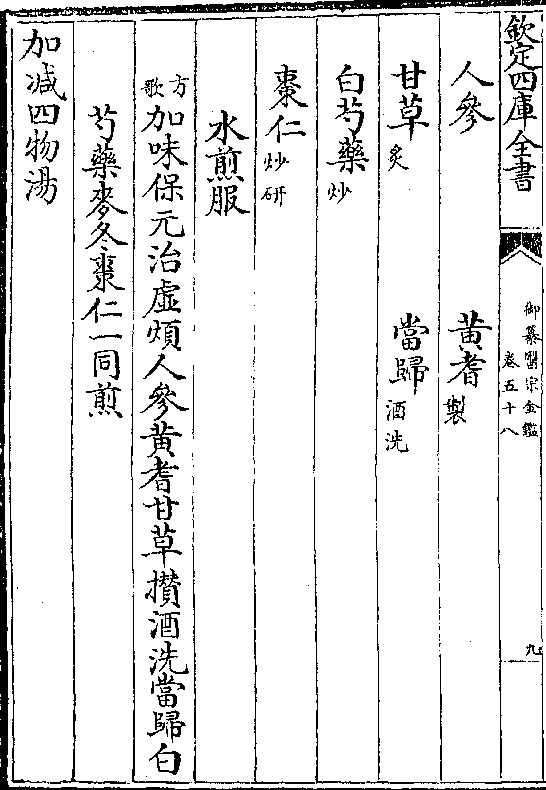 欽定四庫全書
御纂醫宗金鑑
卷五十八
九
人參 黃耆製
甘草炙 當歸酒洗
白芍藥炒
棗仁炒研
水煎服
方歌加味保元治虛煩人參黃耆甘草攢酒洗當歸白
芍藥麥冬棗仁一同煎
加減四物湯